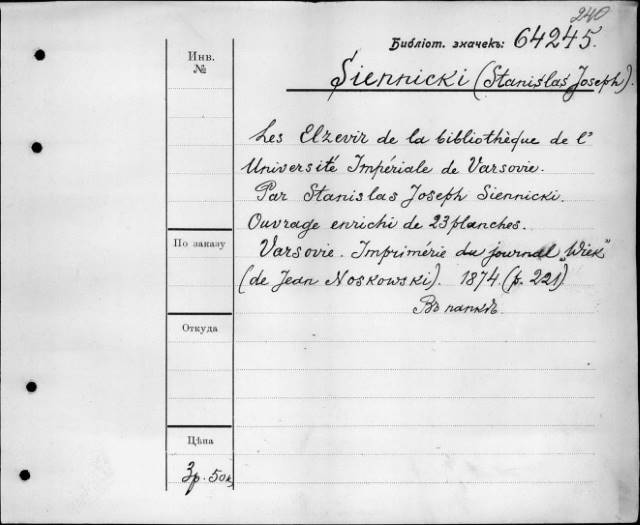 240
Библіот. значекъ: 64245.
Siennicki (Stanislas Joseph).
Инв.
№
Les Elzevir de la bibliothèque de l'
Université Impériale de Varsovie.
Par Stanislas Joseph Siennicki.
Ouvrage enrichi de 23 planches.
По заказу
Varsovie. Imprimérie du journal „Wiek"
(de Jean Noskowski). 1874. (p. 221)
Въ папкѣ.
Откуда
Цѣна
3р. 50к.